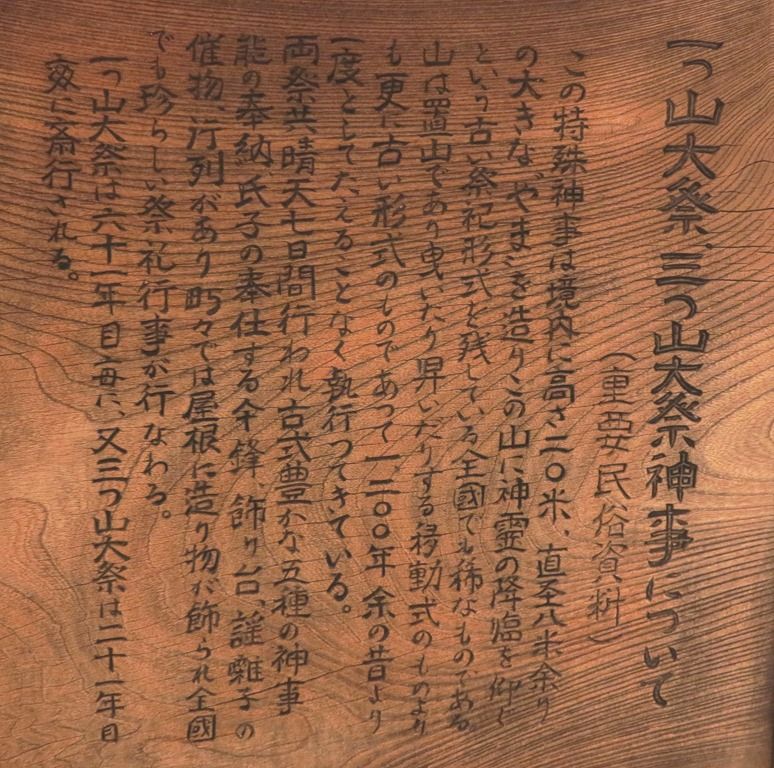 一つ山大祭、三つ山大祭神事について
(重要民俗資料)
この特殊神事は境内に高さ二〇米、直至八米余り
の大きな"やま"を造りこの山に神霊の降臨を仰ぐ
という古い祭祀形式を残している全國でも稀なものである
山は置山であり曳いたり舁いだりする移動式のものより
も更に古い形式のものであって一、二〇〇年余の昔より
一度としてたえることなく執行つてきている。
両祭共晴天七日間行われ古式豊かな五種の神事
能の奉納、氏子の奉仕する傘鋒、飾り台、謡囃子の
催物、行列があり町々では屋根に造り物が飾られ全國
でも珍らしい祭礼行事が行なわる。
一つ山大祭は六十一年目毎に、又三つ山大祭は二十一年目
毎に斎行される。